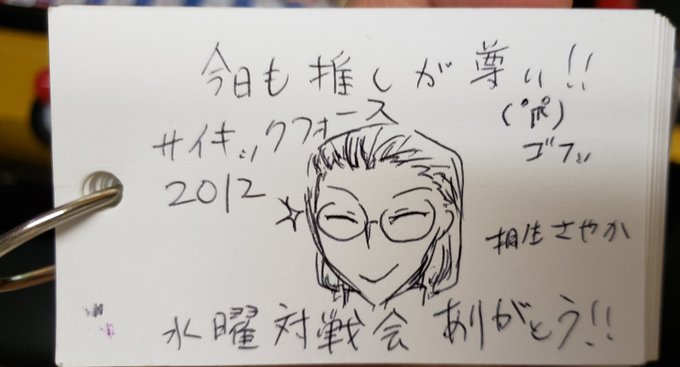 今日も推しが尊い!!
(ﾟпﾟ)
ゴフッ
サイキックフォース
2012
相生さやか
水曜対戦会ありがとう!!